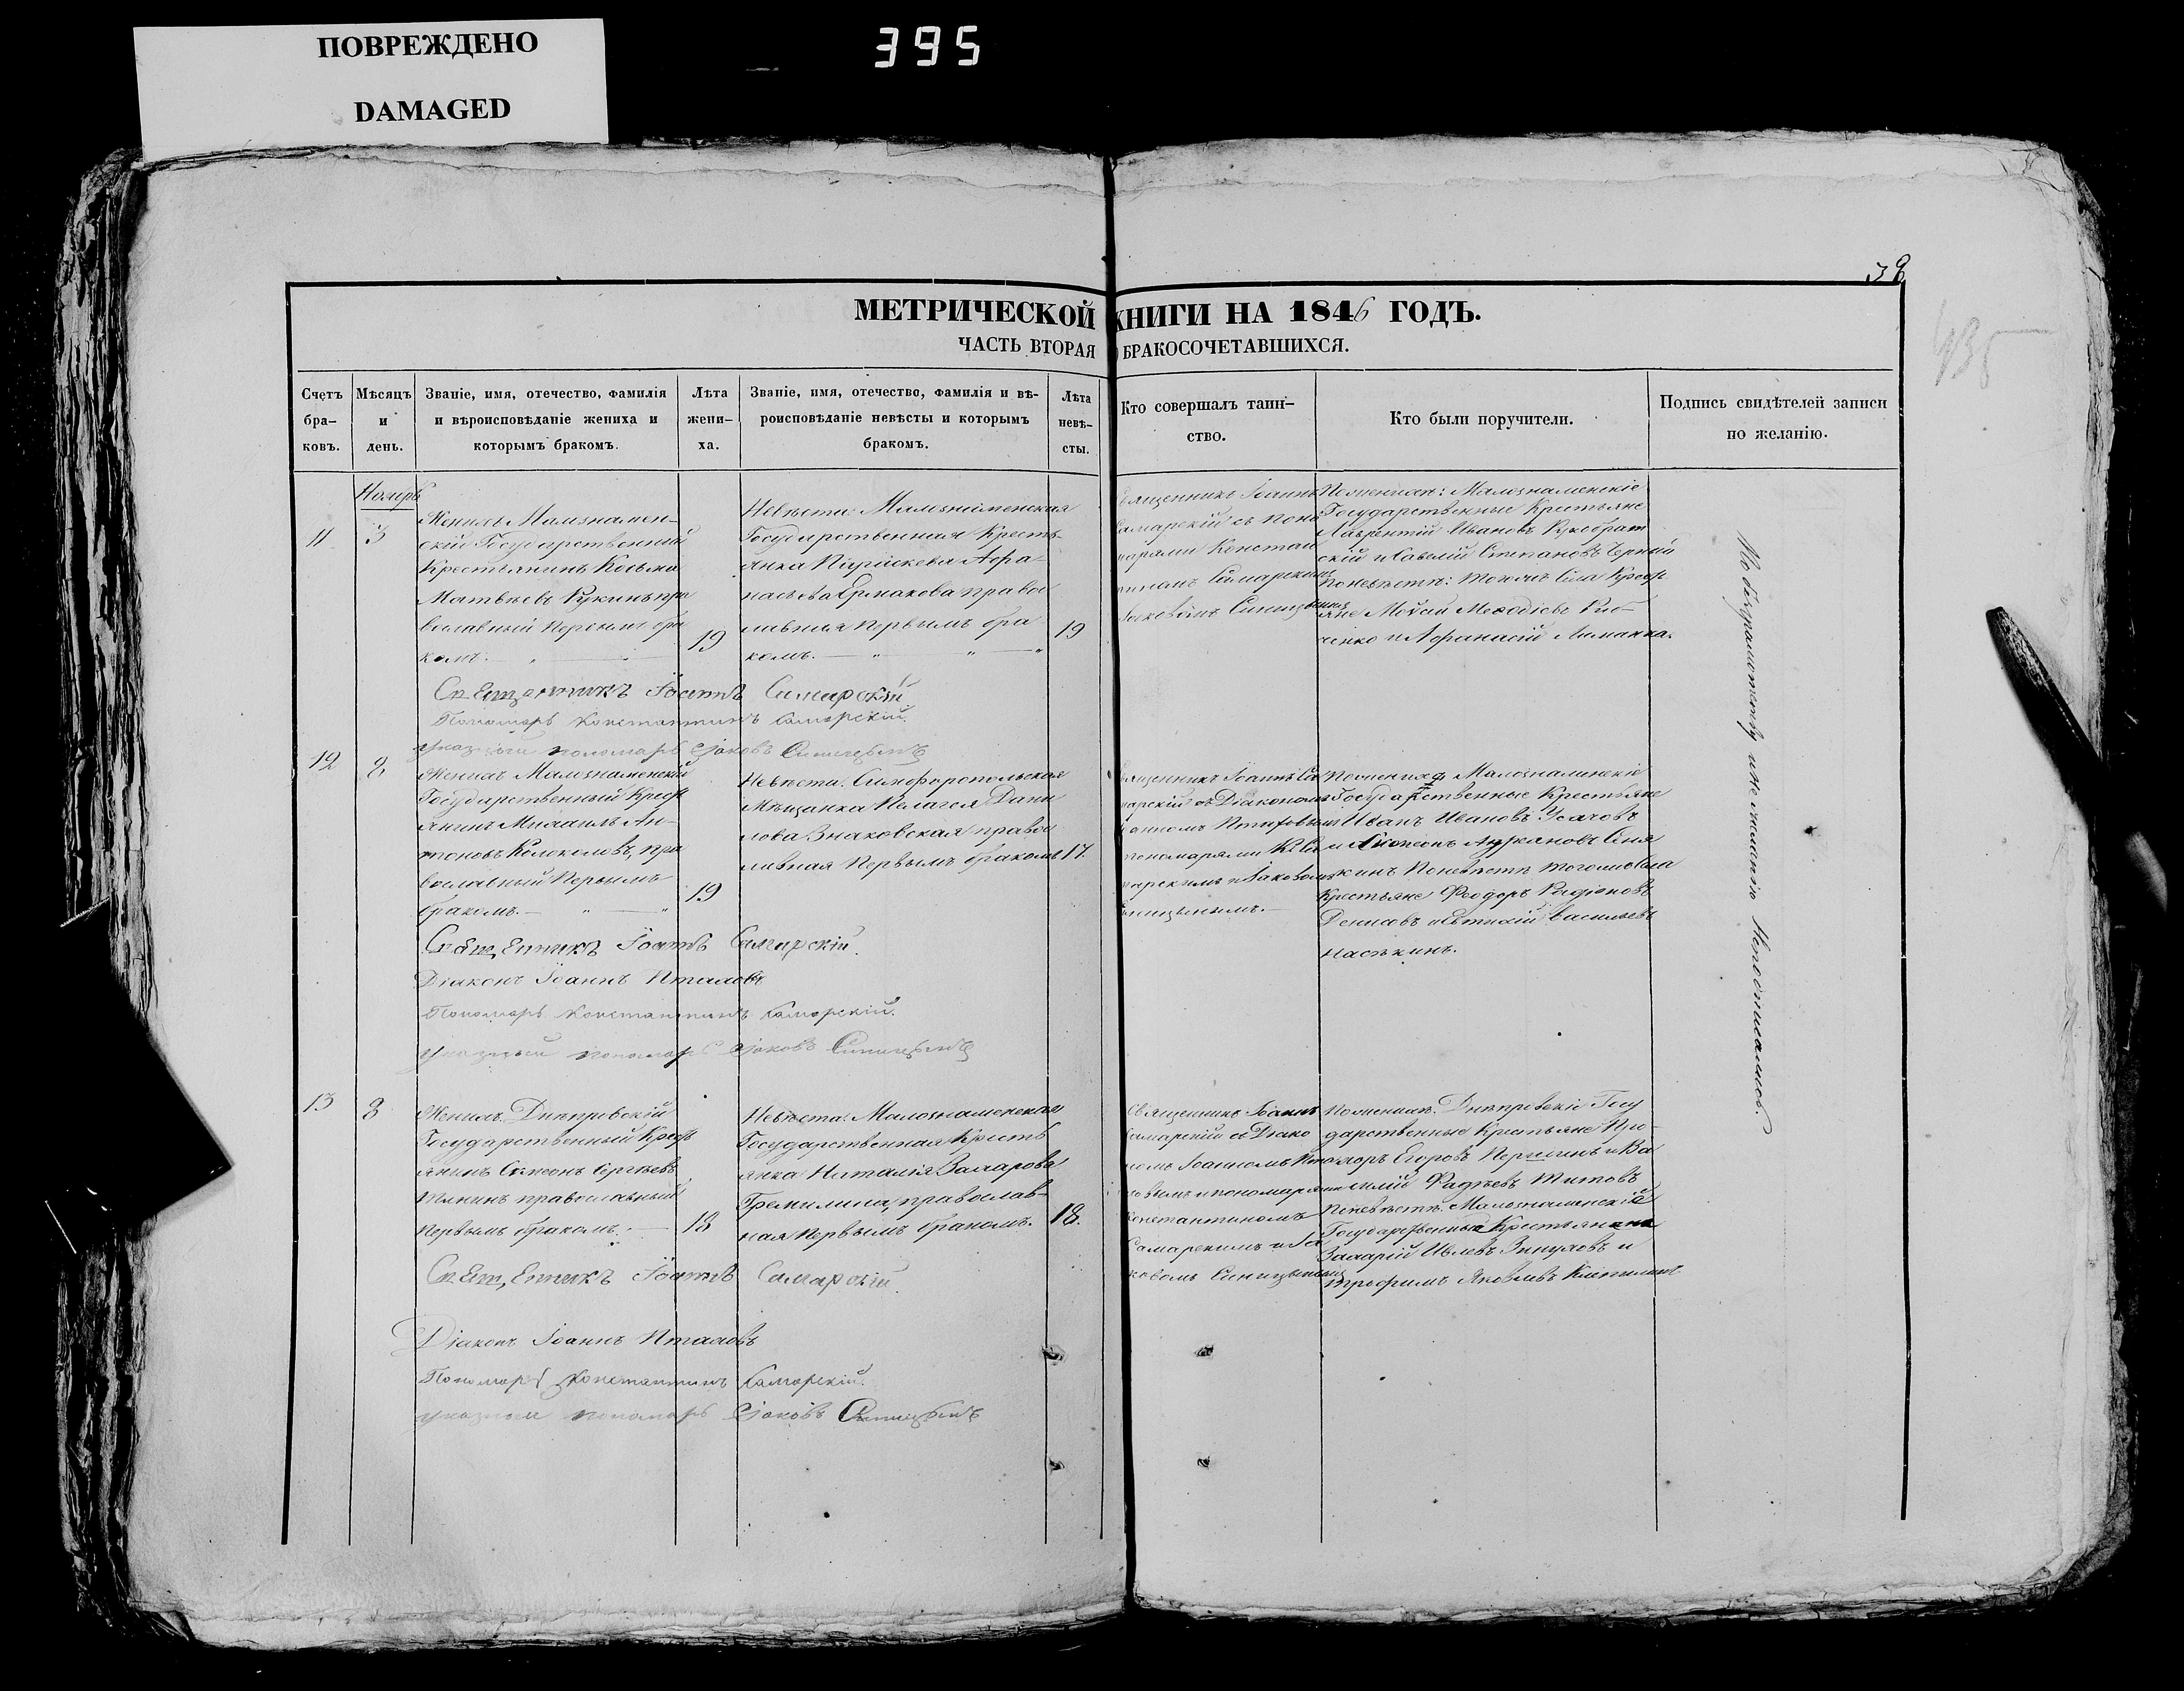 ПОВРЕЖДЕНО
DAMAGED
395
38
МЕТРИЧЕСКОЙ КНИГИ НА 1846 ГОДЪ.
ЧАСТЬ ВТОРАЯ О БРАКОСОЧЕТАВШИХСЯ.
Счетъ
бра-
ковъ.
Мѣсяцъ
и
день.
Званіе, имя, отечество, фамилія
и вѣроисповѣданіе жениха и
которымъ бракомъ.
Лѣта
жени-
ха.
Званіе, имя, отечество, фамилія и вѣ-
роисповѣданіе невѣсты и которымъ
бракомъ.
Лѣта
невѣ-
сты.
Кто совершалъ таин-
ство.
Кто были поручители.
Подпись свидѣтелей записи
по желанію.
Ноябрь
11
3
Женихъ Малознамен-
скій Государственный
Крестьянинъ Косьма
Матвѣевъ Кукинъ пра
вославный первымъ бра
комъ.
19
Невѣста: Малознаменская
Государственная Кресть
янка Параскева Афа
насьева Ермакова правос
лавная первымъ бра
комъ.
19
Священникъ Іоаннъ
Самарскій съ поно
марями Констан
тиномъ Самарскимъ
Іаковомъ Синицынымъ
По женихѣ: Малознаменскіе
Государственные Крестьяне
Лаврентій Ивановъ
скій и Савелій Степановъ Черный
по невѣстѣ: тогожъ села Кресть
яне Меѳодіевъ
ченко и Афанасій
Священникъ Іоаннъ Самарскій
Пономарь Константинъ Самарскій.
Указный пономарь Іаковъ Синицынъ
12
8
Женихъ Малознаменскій
Государственный Кресть
янинъ Михаилъ Ан-
тоновъ Колоколовъ, пра
вославный Первымъ
бракомъ.
19
Невѣста. Симферопольская
Мѣщанка Пелагея Дани
лова Знаковская правос
лавная первымъ бракомъ
17.
Священникъ Іоаннъ Са
марскій съ Діакономъ
Іоанномъ Птаховымъ
пономарями К. Са
марскимъ и Іаковомъ
Синицынымъ.
По женихѣ Малознаменскіе
Государственные Крестьяне
Иванъ Ивановъ Усачовъ
и Симеонъ Синя
кинъ По невѣстѣ тогоже села
Крестьяне Феодоръ Родіоновъ
Денисовъ и Евтихій Васильевъ
Насѣкинъ.
Священникъ Іоаннъ Самарскій.
Діаконъ Іоаннъ Птаховъ
Пономарь Константинъ Самарскій.
Указный пономарь Іаковъ Синицынъ
13
8
Женихъ. Днѣпровскій
Государственный Кресть
янинъ Симеонъ Сергѣевъ
православный
первымъ бракомъ.
18
Невѣста: Малознаменская
Государственная Кресть
янка Наталія Захарова
Гремилина, православ-
ная первымъ бракомъ.
18.
Священникъ Іоаннъ
Самарскій съ Діако
номъ Іоанномъ Пта
ховымъ и пономарями
Константиномъ
Самарскимъ и Іа
ковомъ Синицынымъ
По женихѣ. Днѣпровскіе Госу
дарственные Крестьяне Про-
хоръ Егоровъ и Ва
силій Фадѣевъ Титовъ
По невѣстѣ. Малознаменскіе
Государственные Крестьяне
Захарій и
Трофимъ Яковлевъ
Священникъ Іоаннъ Самарскій.
Діаконъ Іоаннъ Птаховъ
Пономарь Константинъ Самарскій.
Указный пономарь Іаковъ Синицынъ
По безграмотству и не желанію не подписались.